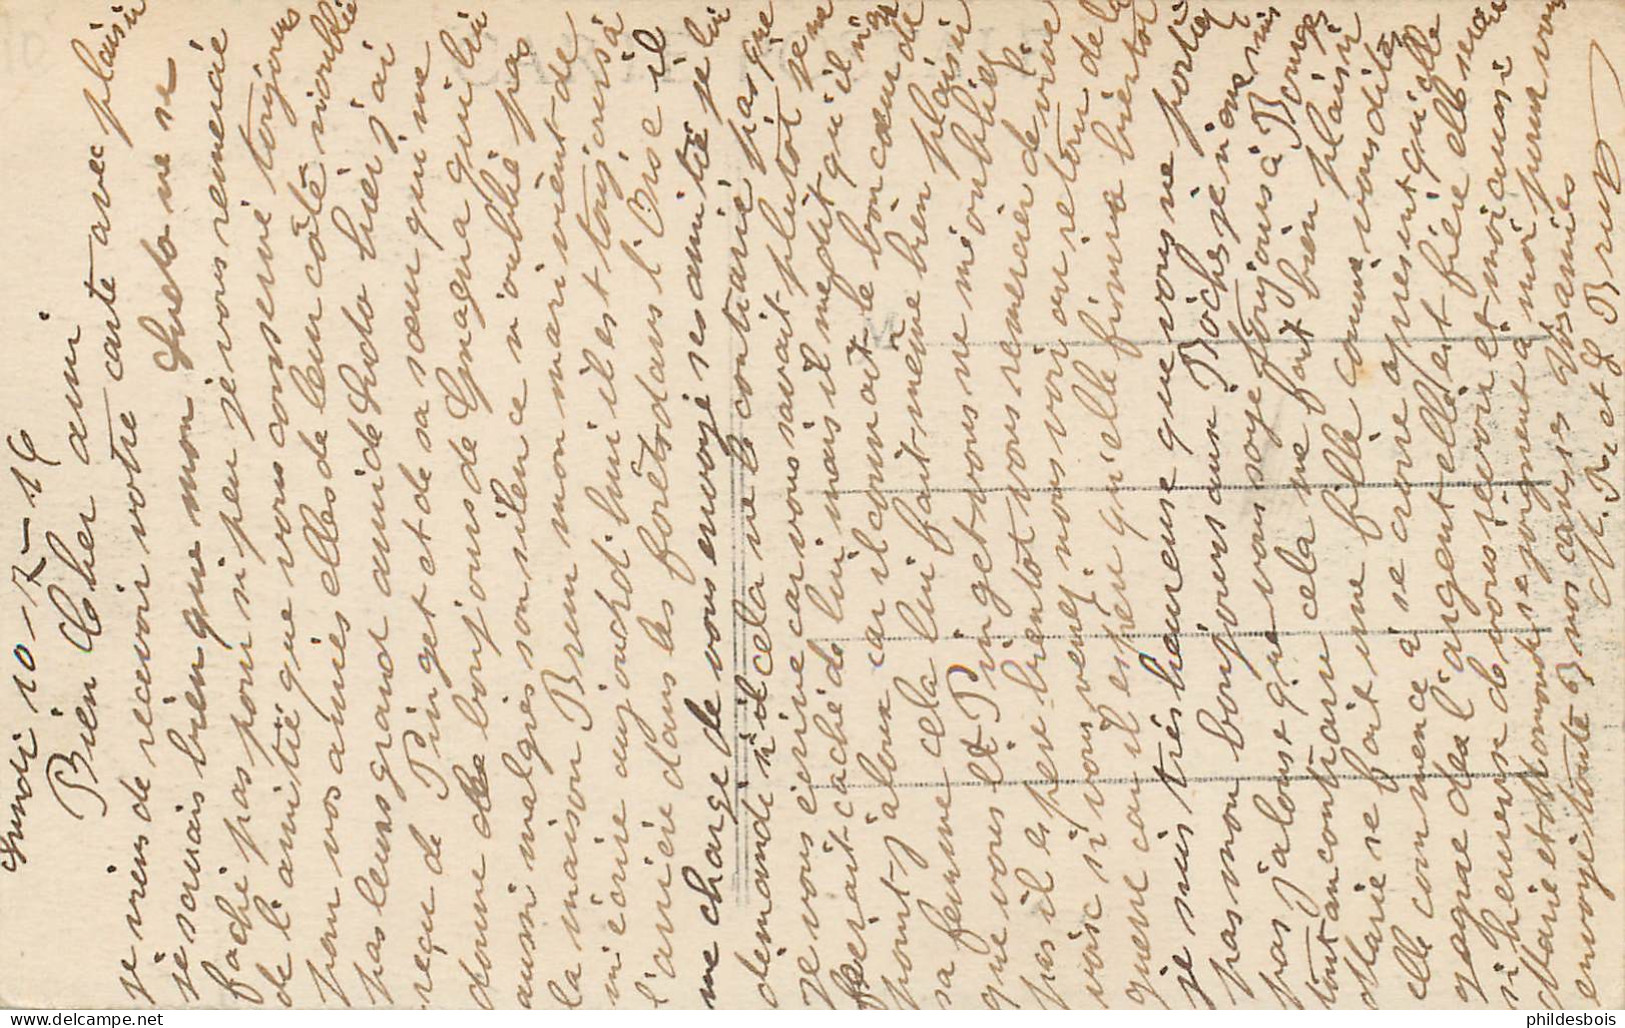 Lundi 10-7-16
Bien Cher ami
je viens de recevoir votre carte avec plaisir
je savais bien que mon Ludo ne se
fachè pas pour si peu je vous remercie
de l'amitié que vous conservé toujours
pour vos amies elles de leur côté n'oublie
pas leurs grand ami de Ludo hier j'ai
reçu de Pinget et de sa sœur qui me
donne des bonjours de qui lui
aussi malgrés son silence n'oublie pas
la maison Brun mon mari vient de
m'écrire aujourd'hui il est toujours à
l'arrière dans les forêts dans l'Oise il
me charge de vous envoyé ses amitié je lui
demande si cela ne le contrarié pas que
je vous écrive car vous savait plutot je me
ferait caché de lui mais il me dit qu'il n'es
point jaloux car il connaît le bon cœur de
sa femme cela lui fait même bien plaisir
que vous et Pinget vous ne m'oubliez
pas il espere bientot vous remercier de vive
voic si vous venez nous voir au retour de la
guerre car il espère qu'elle finira bientot
je suis très heureuse que vous ne portiez
pas mon bonjours aux Boches je n'ome suis
pas jalouse que vous soye toujours à Bourges
tout au contraire cela me fait bien plaisir
Marie se fait une fille comme vous dites
elle commence à se croire apresent qu'elle
gagne de l'argent elle est fière elle serai
si heureuse de vous revoir et moi aussi
Marie et Edmond se joignent à moi pour vous
envoyé toute nos causes Vos amies
M. M et L Brun
philedesbois